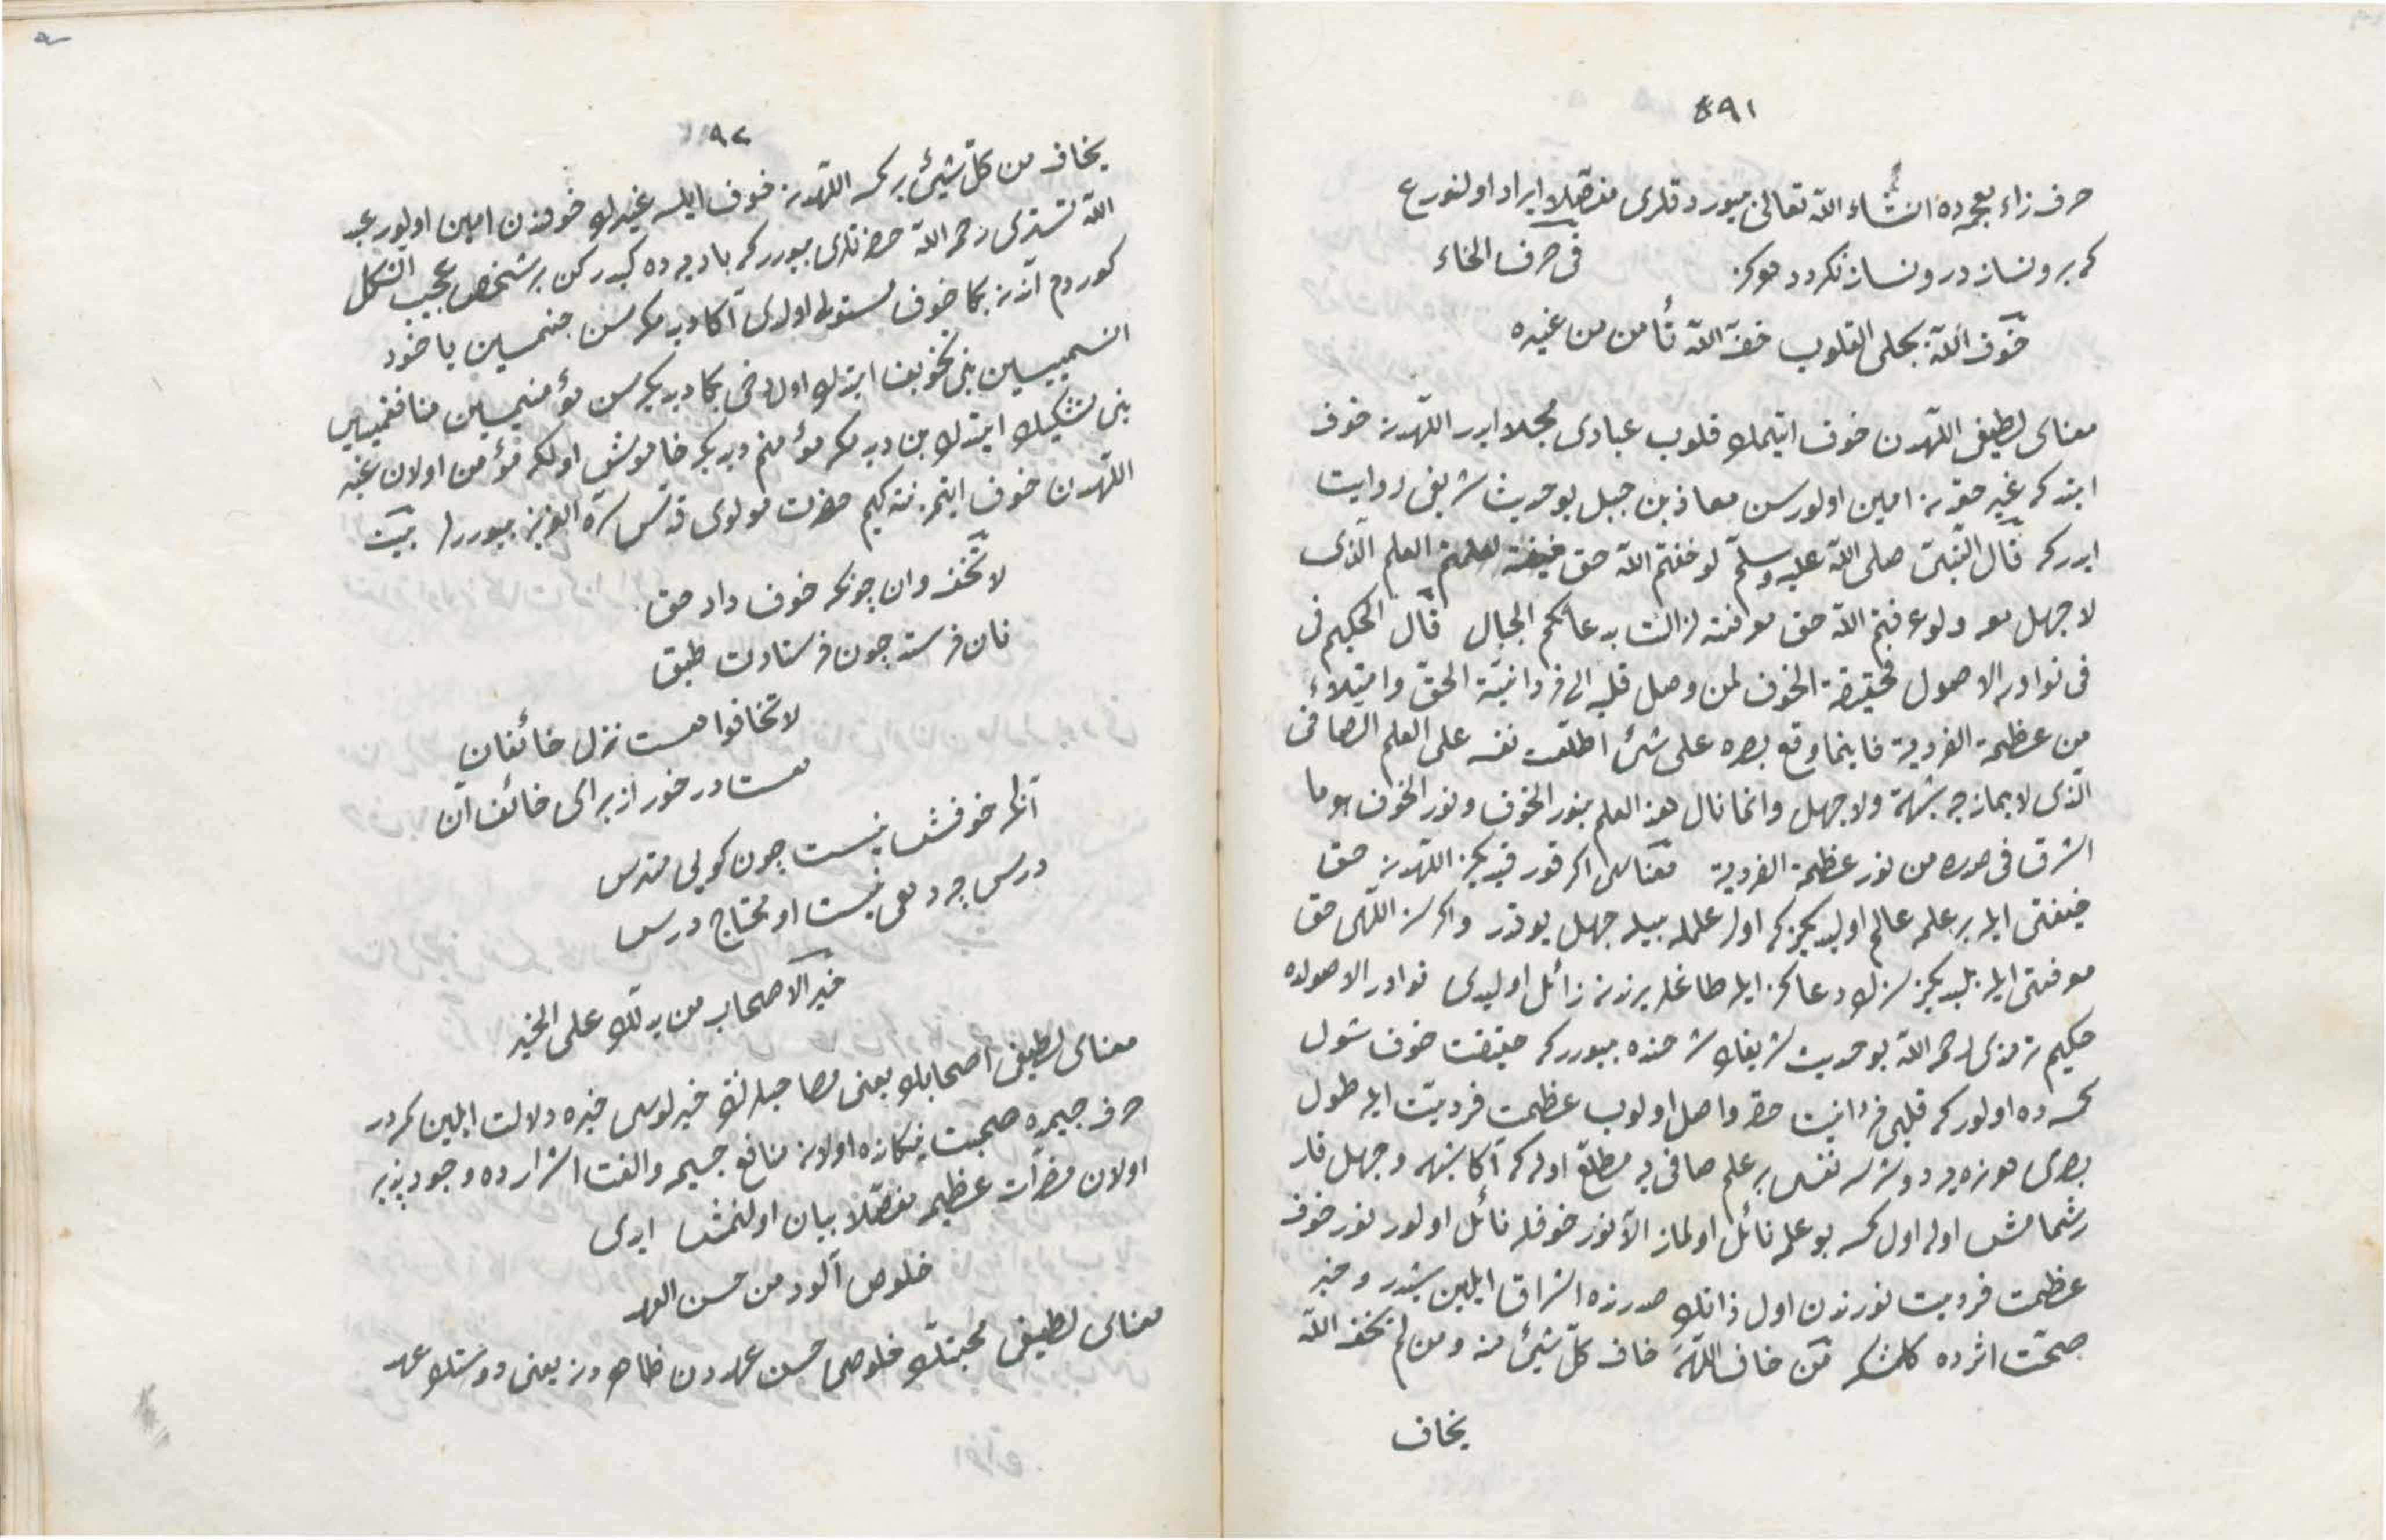 ٨٩١
حرف زاء معجمه ده انشاء الله تعالى ميورد قلرى مفصلا ايراد اولنور ع
كه برونساز درونساز نكردد هركز فى حرف الخاء
خوف الله يجلى القلوب خف الله تأمن من غيره
معناى لطيفى اللهدن خوف ايتمك قلوب عبادى مجلا ايدر اللهدن خوف
ايت كه غير حقدن امين اولورسن معاذ بن جبل بو حديث شريفى روايت
ايدركه قال النبى صلى الله عليه وسلم لو خفتم الله حق خيفته لعلمتم العلم الذى
لا جهل معه ولو عرفتم الله حق معرفته لزالت بدعائكم الجبال قال الحكيم فى
فى نوادر الاصول فحقيقة الخوف لمن وصل قلبه الى فردانية الحق وامتلاء
من عظمة الفردية فاينما وقع بصره على شئ اطلعت نفسه على العلم الصافى
الذى لا يمازجه شبهة ولا جهل وانما نال هذا العلم بنور الخوف ونور الخوف هو ما
اشرق فى صدره من نور عظمة الفردية معناسى اكر قورقيديكز اللهدن حق
خيفتى ايله بر علمه عالم اوليديكز كه اول علمله بيله جهل يوقدر واكر سز اللهى حق
معرفتى ايله بيلديكز سزك دعاكز ايله طاغلر يرندن زائل اوليدى نوادر الاصولده
حكيم ترمذى رحمه الله بو حديث شريفك شرحنده بيوررکه حقيقت خوف شول
كمسه ده اولوركه قلبى فردانيت حقه واصل اولوب عظمت فرديت ايله طول
بصرى هر نه يه دوشرسه نفسى بر علم صافى يه مطلع اوله كه آكا شبهه وجهل قار
شمامش اوله اول كمسه بو علمه نائل اولماز الا نور خوفله نائل اولور نور خوف
عظمت فرديت نورندن اول ذاتك صدرنده اشراق ايلين شيدر وخبر
صحت اثرده كلمشدر من خاف الله خاف كل شيئ منه ومن لم يخف الله
يخاف
٩٢
يخاف من كل شيئ بر كمسه اللهدن خوف ايلسه غيرك خوفندن امين اولور عبد
الله تسترى رحمه الله حضرتلرى بيورركه باديه ده كيدركن بر شخص عجيب الشكل
كوردم آندن بكا خوف مستولى اولدى آكا ديدمكه سن جنميسين ياخود
انسميسين بنى تخويف ايتدك اول دخى بكا ديديكه سن مؤمنميسين منافقميسين
بنى تشكيك ايتدك بن ديدمكه مؤمنم ديديكه خاموش اولكه مؤمن اولان غير
اللهدن خوف ايتمز نته كيم حضرت مولوى قدس سره العزيز بيوررلر بيت
لا تخف دان چونكه خوفت داد حق
نان فرستد چون فرستادت طبق
لا تخافوا هست نزل خائفان
هست در خور از براى خائف آن
آنكه خوفش نيست چون كويى مترس
درس چه دهى نيست او محتاج درس
خير الاصحاب من يدلك على الخير
معناى لطيفى اصحابك يعنى مصاحبلرنك خيرلوسى خيره دلالت ايلين كمسه در
حرف جيمده صحبت نيكانده اولان منافع جسيمه والفت اشرارده وجودپذير
اولان مضرات عظيمه مفصلا بيان اولنمش ايدى
خلوص الود من حسن العهد
معناى لطيفى محبتك خلوصى حسن عهددن ظاهردر يعنى دوستك عهد